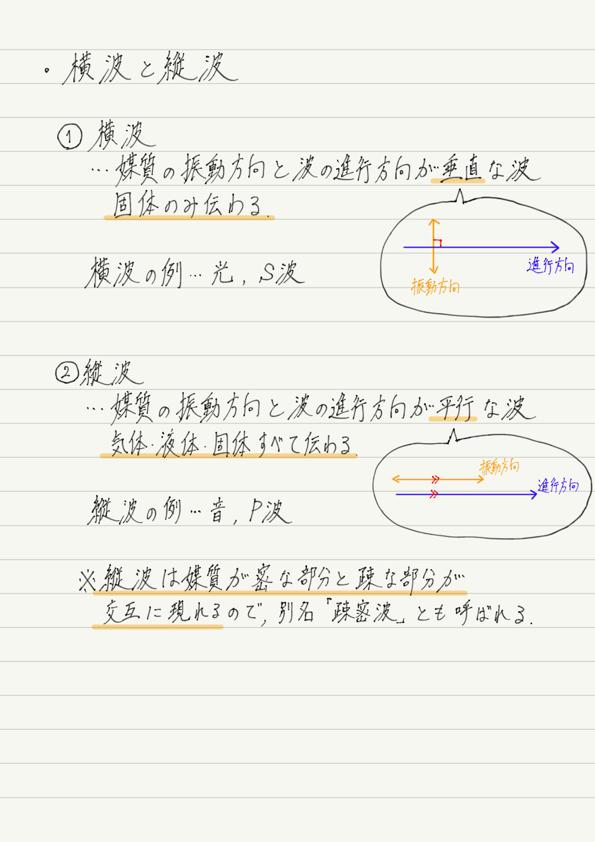 ・横波と縦波
① 横波
…媒質の振動方向と波の進行方向が垂直な波
固体のみ伝わる.
進行方向
振動方向
横波の例…光, S波
② 縦波
…媒質の振動方向と波の進行方向が平行な波
気体・液体・固体すべて伝わる.
振動方向
進行方向
縦波の例…音, P波
※縦波は媒質が密な部分と疎な部分が
交互に現れるので, 別名「疎密波」とも呼ばれる.